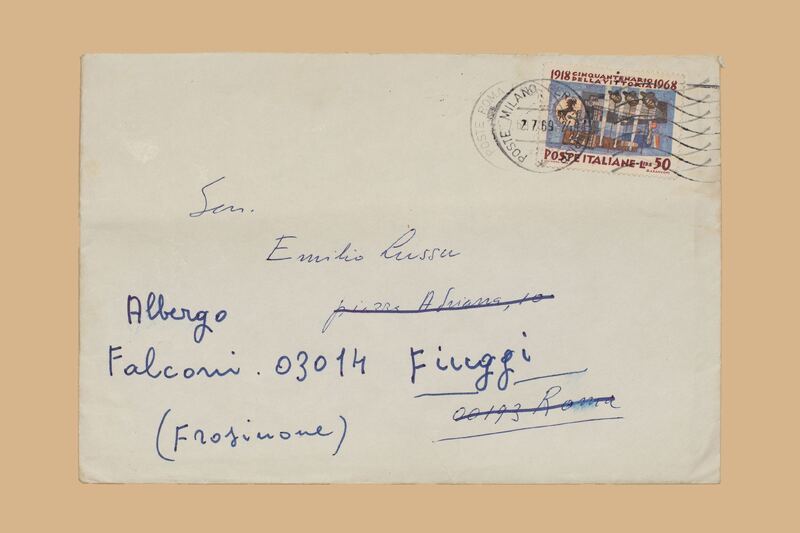 1918 CINQUANTENARIO 1968
DELLA VITTORIA
POSTE ITALIANE-LIRE 50
POSTE ROMA
POSTE MILANO
7.7.69
Sen.
Emilio Lussu
piazza Adriana, 10
Albergo
Falconi. 03014 Fiuggi
00193 Roma
(Frosinone)